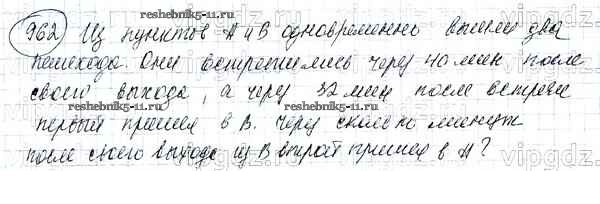 reshebnik5-11.ru
962 Из пунктов А и В одновременно вышли два
пешехода. Они встретились через 40 мин после
своего выхода, а через 32 мин после встречи
первый пришел в В. Через сколько минут
после своего выхода из В второй пришел в А?
vipgdz.
reshebnik5-11.ru
reshebnik5-11.ru
vipgdz.com